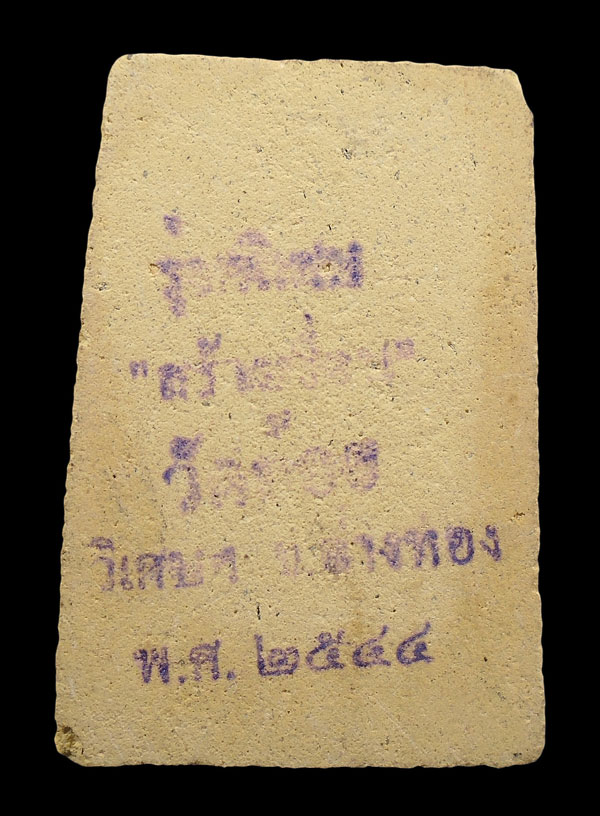 รุ่นพิเศษ
"สร้างเขื่อน"
วัด
วิเศษฯ จ.อ่างทอง
พ.ศ. ๒๕๔๔